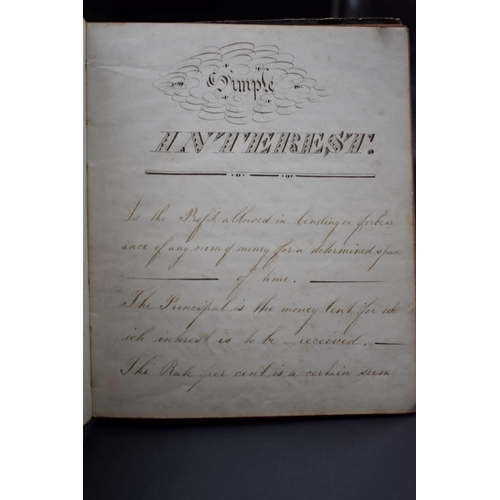 Simple
INTEREST.
Is the Profit allowed in lending or forbear
ance of any sum of money for a determined space
of time.
The Principal is the money lent for wh
ich interest is to be received.
The Rate per cent is a certain sum